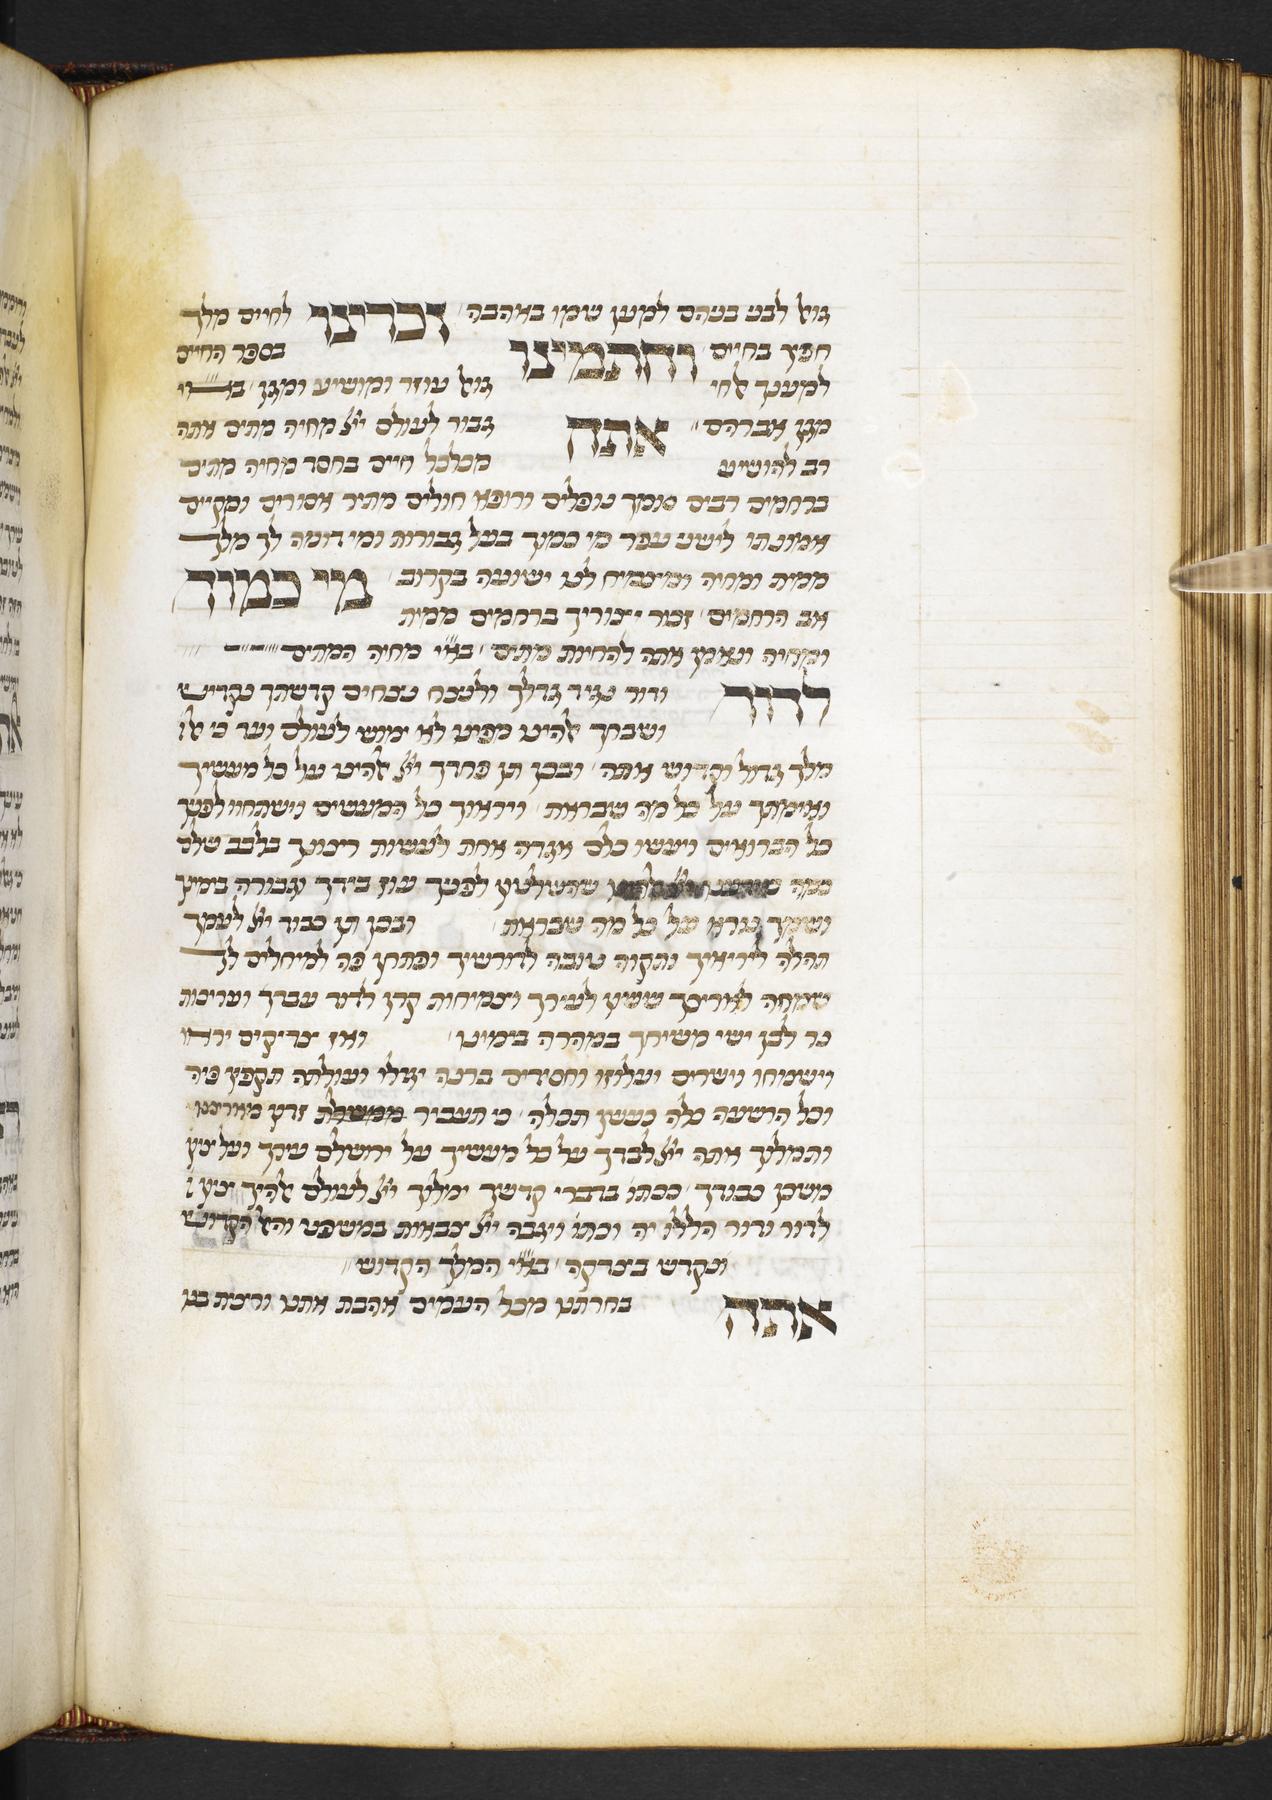 גואל לבני בניהם למען שמו באהבה זכרינו לחיים מלך
חפץ בחיים וחתמינו בספר החיים
למענך לחי גואל עוזר ומושיע ומגן ב
מגן אברהם אתה גבור לעולם יא מחיה מתים אתה
רב להושיע מכלכל חיים בחסד מחיה מתים
ברחמים רבים סומך נופלים ורופא חולים מתיר אסורים ומקיים
אמונתו לישני עפר מי כמוך בעל גבורות ומי דומה לך מלך
ממית ומחיה ומצמיח לנו ישועה בקרוב מי כמוך
אב הרחמים זוכר יצוריך ברחמים ממית
ומחיה ונאמן אתה להחיות מתים באיי מחיה המתים
לדור ודור נגיד גודלך ולנצח נצחים קדושתך נקדיש
ושבחך אלהינו מפינו לא ימוש לעולם ועד כי אל
מלך גדול וקדוש אתה ובכן תן פחדך יא אלהינו על כל מעשיך
ואימתך על כל מה שבראת וייראוך כל המעשים וישתחוו לפניך
כל הברואים ויעשו כלם אגדה אחת לעשות רצונך בלבב שלם
שהשלטון לפניך עוז בידך וגבורה בימינך
ושמך נורא על כל מה שבראת ובכן תן כבוד יא לעמך
תהלה ליריאיך ותקוה טובה לדורשיך ופתחון פה למיחלים לך
שמחה לארצך ששון לעירך וצמיחות קרן לדוד עבדך ועריכות
נר לבן ישי משיחך במהרה בימינו ואז צדיקים יראו
וישמוחו וישרים יעלוזו וחסידים ברנה יגילו ועולתה תקפץ פיה
וכל הרשעה כלה כעשן תכלה כי תעביר ממשלת זדון מארצנו
ותמלוך אתה יא לבדך על כל מעשיך על ירושלם עירך ועל ציון
משכן כבודך ככתו בדברי קדשך ימלוך יא לעולם אלהיך ציון ל
לדור ודור הללו יה וכתו ויגבה יא צבאות במשפט והאל הקדוש
ונקדש בצדקה באיי המלך הקדוש
אתה בחרתנו מכל העמים אהבת אתנו ורצית בנו